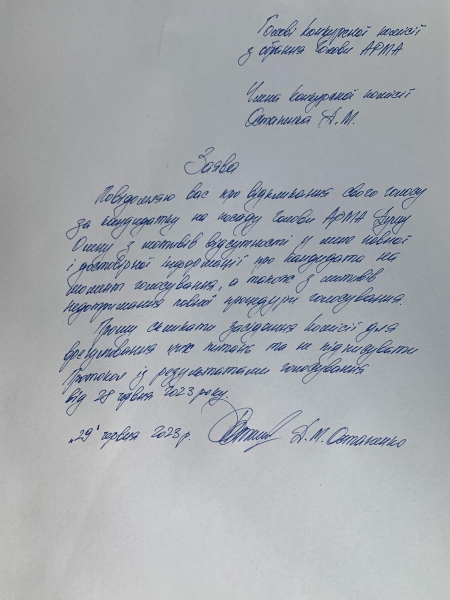 Голові конкурсної комісії
з обрання Голови АРМА
Члена конкурсної комісії
Остапенка А.М.
Заява
Повідомляю вас про відкликання свого голосу
за кандидатку на посаду Голови АРМА Думу
Олену з мотивів відсутності у мене повної
і достовірної інформації про кандидата на
момент голосування, а також з мотивів
недотримання повної процедури голосування.
Прошу скликати засідання комісії для
врегулювання цих питань та не підписувати
Протокол із результатами голосування
від 28 червня 2023 року.
„29" червня 2023 р. А.М. Остапенко